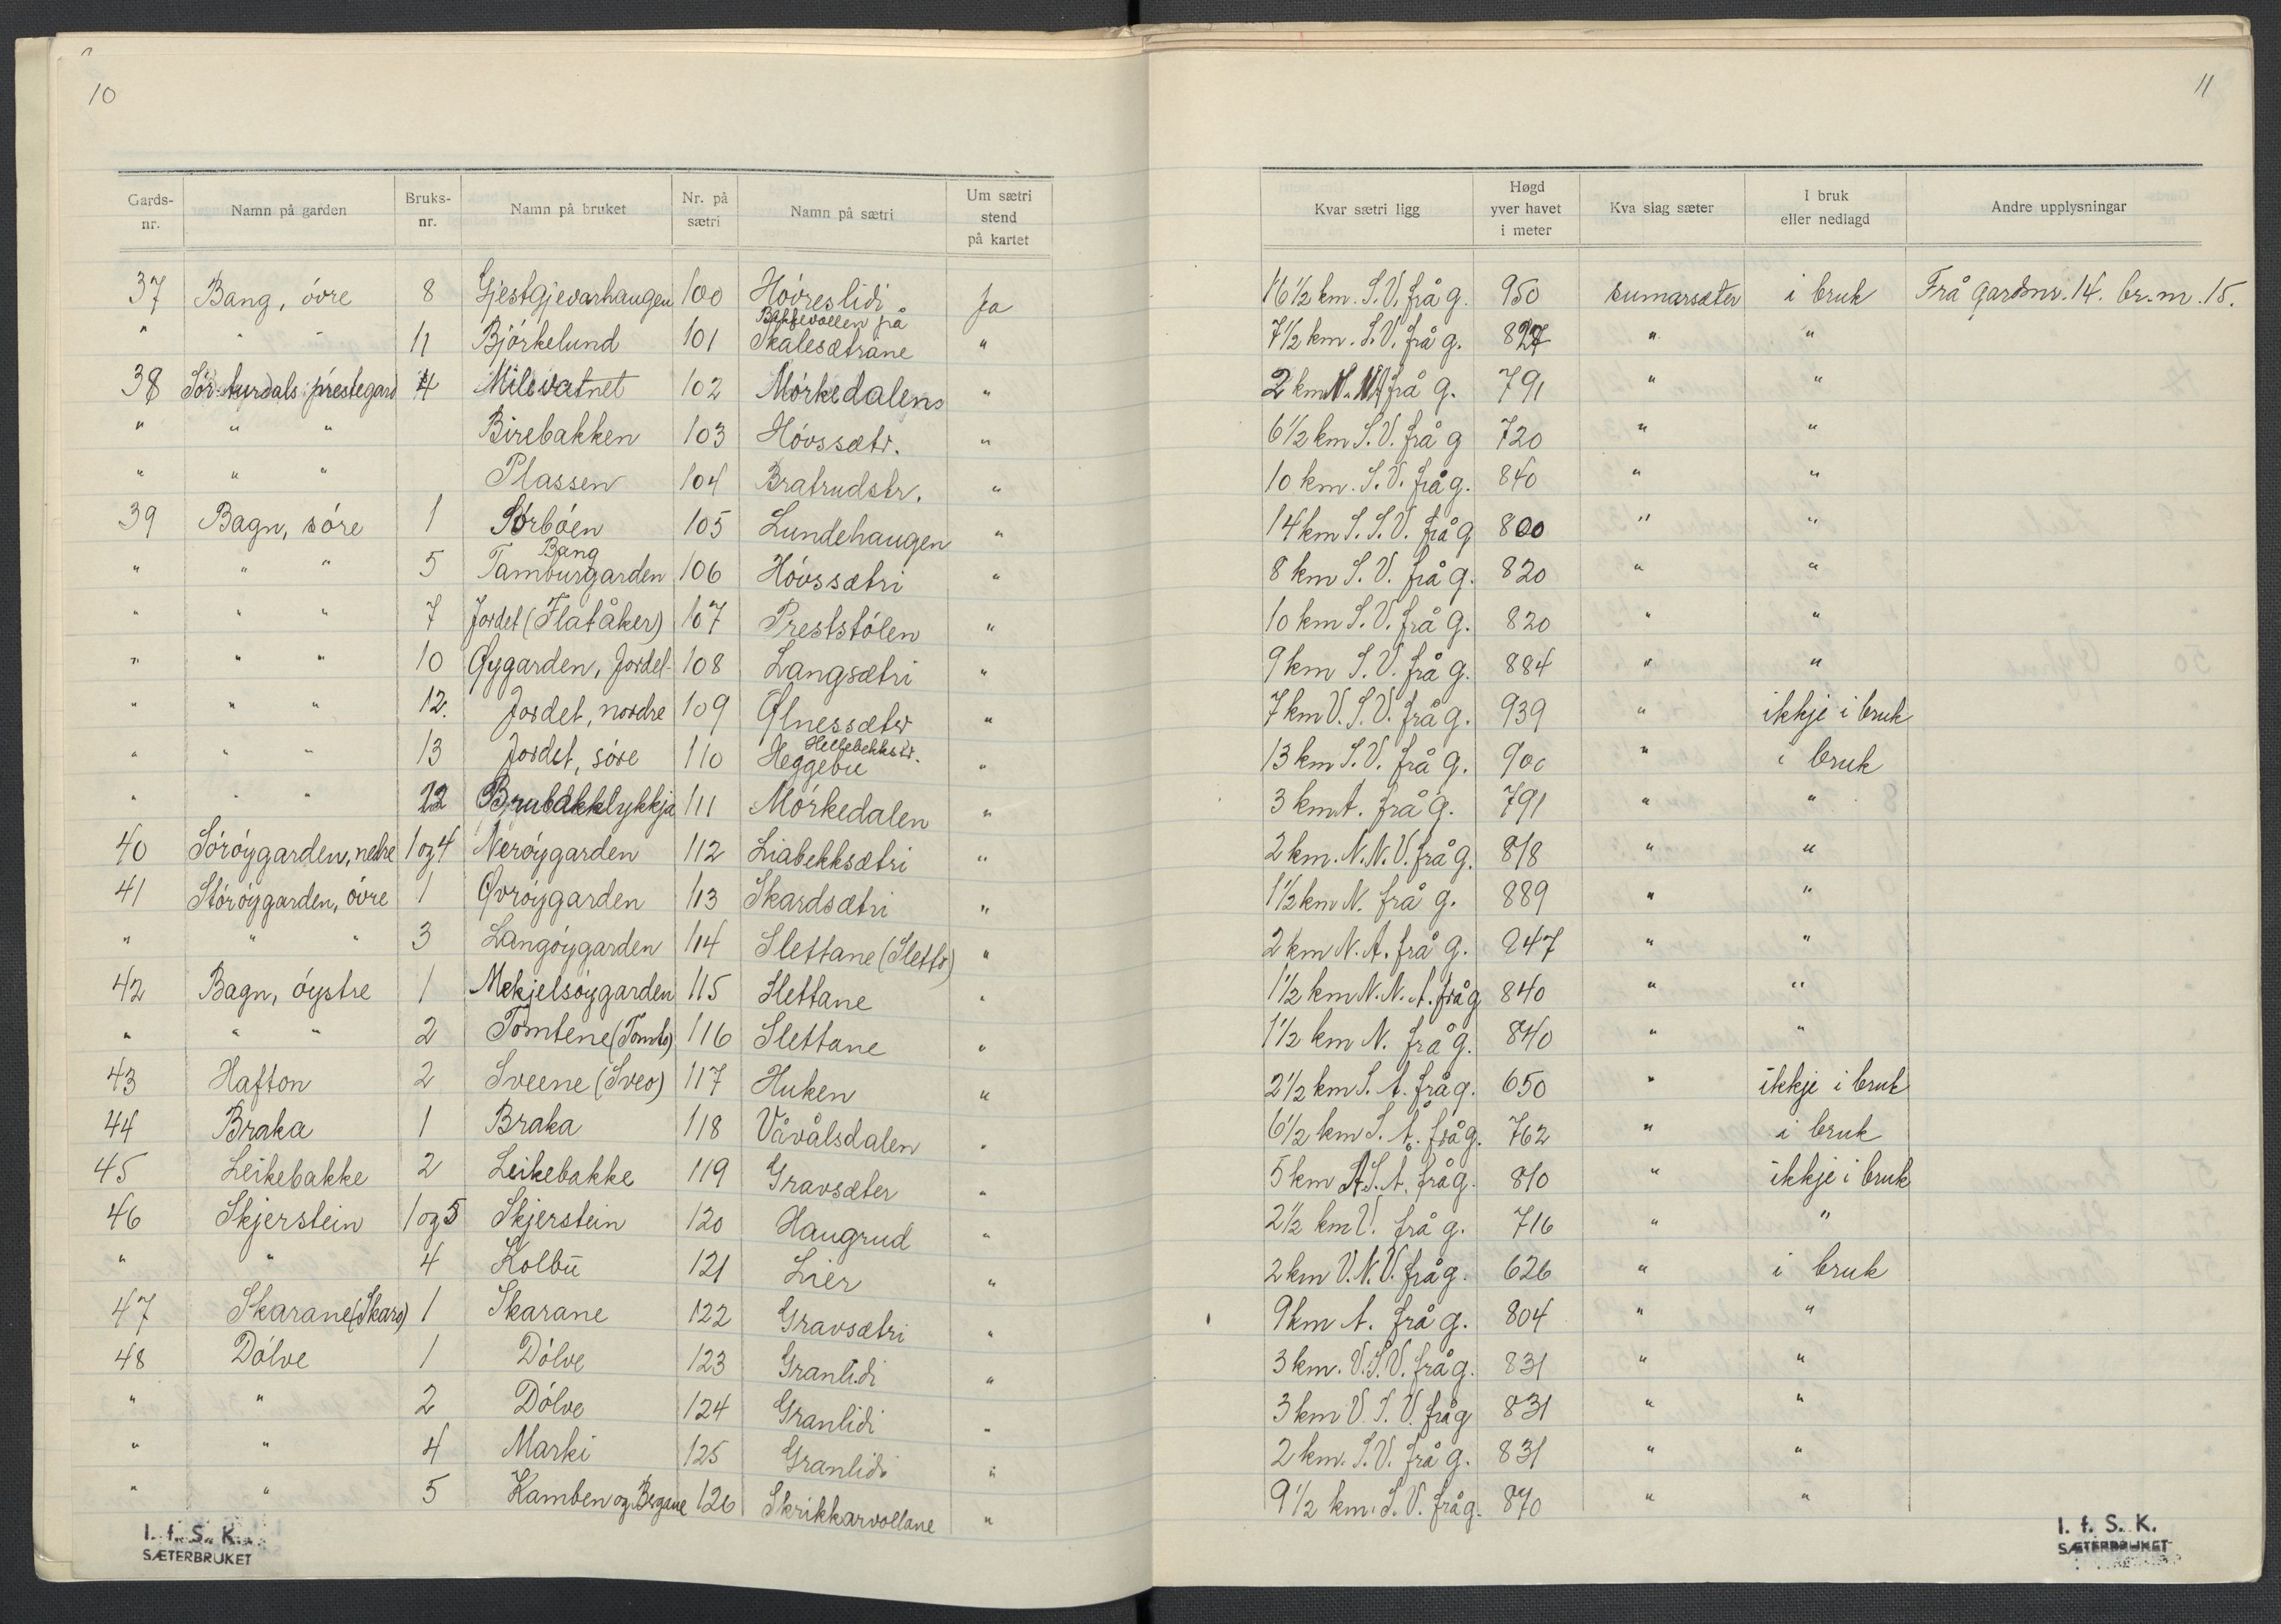 10
Gards-nr. Namn på garden Bruks-nr. Namn på bruket Nr. på sætri Namn på sætri Um sætri stend på kartet
37 Bang, óvre 8 Gjestgjevarhaugen 100 Hóvreslidi Ja
" " " 11 Bjórkelund 101 Bakkevollen på Skalesætrane "
38 Sór-Aurdals prestegard 4 Milevatnet 102 Mórkedalen "
" " " Birebakken 103 Hóvssætr. "
" " " Plassen 104 Bratrudstr. "
39 Bagn, sóre 1 Sórbóen 105 Lundehaugen "
" " " 5 Bang Tamburgarden 106 Hóvssætri "
" " " 7 Jordet (Flatåker) 107 Preststólen "
" " " 10 Øygarden, Jordet 108 Langsætri "
" " " 12. Jordet, nordre 109 Ølnessætr "
" " " 13 Jordet, sóre 110 Hellebekkstr. Heggebu "
" " " 22 Brubakklykkja 111 Mórkedalen "
40 Sóróygarden, nedre 1 og 4 Neróygarden 112 Liabekksætri "
41 Stóróygarden, óvre 1 Øvróygarden 113 Skardsætri "
" " " 3 Langóygarden 114 Slettane (Sletto) "
42 Bagn, óystre 1 Mekjelsóygarden 115 Slettane "
" " " 2 Tomtene (Tomto) 116 Slettane "
43 Hafton 2 Sveene (Sveo) 117 Huken "
44 Braka 1 Braka 118 Våvålsdalen "
45 Leikebakke 2 Leikebakke 119 Gravsæter "
46 Skjerstein 1 og 5 Skjerstein 120 Haugrud "
" " 4 Kolbu 121 Lier "
47 Skarane (Skaro) 1 Skarane 122 Gravsætri "
48 Dólve 1 Dólve 123 Granlidi "
" " 2 Dólve 124 Granlidi "
" " 4 Marki 125 Granlidi "
" " 5 Kamben og Bergane 126 Skrikkarvollane "
I. f. S. K.
SÆTERBRUKET
11
Kvar sætri ligg Høgd yver havet i meter Kva slag sæter I bruk eller nedlagd Andre upplysningar
16 1/2 km. S.V. frå g. 950 sumarsæter i bruk Frå gardsnr. 14. br.nr. 15.
7 1/2 km. S.V. frå g. 827 " "
2 km frå g. 791 " "
6 1/2 km S.V. frå g 720 " "
10 km. S.V. frå g. 840 " "
14 km S.S.V. frå g 800 " "
8 km S.V. frå g. 820 " "
10 km S.V. frå g. 820 " "
9 km S.V. frå g. 884 " "
7 km V.S.V. frå g. 939 " ikkje i bruk
13 km S.V. frå g. 900 " i bruk
3 km A. frå g. 791 " "
2 km. N.N.V. frå g. 818 " "
1 1/2 km N. frå g. 889 " "
2 km N.A. frå g. 847 " "
1 1/2 km N.N.A. frå g 840 " "
1 1/2 km N. frå g. 840 " "
2 1/2 km S.A. frå g. 650 " ikkje i bruk
6 1/2 km S.A. frå g. 762 " i bruk
5 km A.S.A. frå g. 810 " ikkje i bruk
2 1/2 km V. frå g. 716 " "
2 km V.N.V. frå g. 626 " i bruk
9 km A. frå g. 804 " "
3 km. V.S.V. frå g. 831 " "
3 km V.S.V. frå g 831 " "
2 km. S.V. frå g. 831 " "
9 1/2 km. S.V. frå g. 870 " "
I. f. S. K.
SÆTERBRUKET